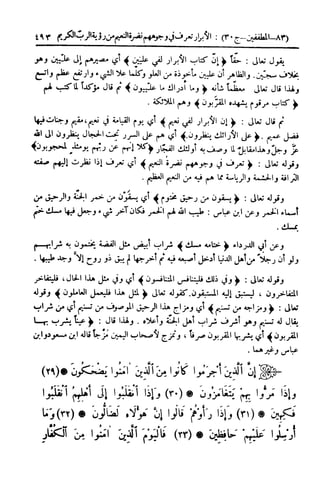 (٨٣ــالمطففين ــ ج٣٠) : الأبرار تعرف في وجوههم نضرة النعيم من رؤية الرب الكريم ٤٩٣
يقول تعالى : حقاً ﴿ إن كتاب الأبرار لفي عليين ﴾ أي مصيرهم إلى عليين وهو
بخلاف سجين. والظاهر أن عليين مأخوذة من العلو وكلما علا الشيء وارتفع عظم واتسع
ولهذا قال تعالى معظماً شأنه ﴿ وما أدراك ما عليون ﴾ ثم قال مؤكداً لما كتب لهم
﴿ كتاب مرقوم يشهده المقربون ﴾ وهم الملائكة .
ثم قال تعالى : ﴿ إن الأبرار لفي نعيم ﴾ أي يوم القيامة في نعيم مقيم وجنات فيها
فضل عميم . ﴿ على الأرائك ينظرون ﴾ أي هم على السرر تحت الحجال ينظرون إلى الله
عز وجل وهذا مقابل لما وصف به أولئك الفجار ﴿ كلا إنهم عن ربهم يومئذ لمحجوبون ﴾
وقوله تعالى : ﴿ تعرف في وجوههم نضرة النعيم ﴾ أي تعرف إذا نظرت إليهم صفة
الترافة والحشمة والرياسة مما هم فيه من النعيم العظيم .
وقوله تعالى : ﴿ يسقون من رحيق مختوم ﴾ أي يسقون من خمر الجنة والرحيق من
أسماء الخمر وعن ابن عباس : طيب الله لهم الخمر فكان آخر شيء وجعل فيها مسك ختم
بمسك .
وعن أبي الدرداء ﴿ ختامه مسك ﴾ شراب أبيض مثل الفضة يختمون به شرابهم
ولو أن رجلاً من أهل الدنيا أدخل أصبعه فيه ثم أخرجها لم يبق ذو روح إلا وجد طيبها .
وقوله تعالى : ﴿ وفي ذلك فليتنافس المتنافسون ﴾ أي وفي مثل هذا الحال، فليتفاخر
المتفاخرون ، ليستبق إليه المستبقون. كقوله تعالى ﴿ لمثل هذا فليعمل العاملون ﴾ وقوله
تعالى : ﴿ ومزاجه من تسنيم ﴾ أي ومزاج هذا الرحيق الموصوف من تسنيم أي من شراب
يقال له تسنيم وهو أشرف شراب أهل الجنة وأعلاه . ولهذا قال : ﴿ عيناً يشرب بها
المقربون ﴾ أي يشربها المقربون صرفاً ، وتمزج لأصحاب اليمين مزجاً قاله ابن مسعود وابن
عباس وغيرهما .
إِنَّ ٱلَّذِينَ أَجْرَمُوا۟ كَانُوا۟ مِنَ ٱلَّذِينَ ءَامَنُوا۟ يَضْحَكُونَ (٢٩)
وَإِذَا مَرُّوا۟ بِهِمْ يَتَغَامَزُونَ (٣٠) وَإِذَا ٱنقَلَبُوٓا۟ إِلَىٰٓ أَهْلِهِمُ ٱنقَلَبُوا۟
فَكِهِينَ (٣١) وَإِذَا رَأَوْهُمْ قَالُوٓا۟ إِنَّ هَٰٓؤُلَآءِ لَضَآلُّونَ (٣٢) وَمَآ
أُرْسِلُوا۟ عَلَيْهِمْ حَافِظِينَ (٣٣) فَٱلْيَوْمَ ٱلَّذِينَ ءَامَنُوا۟ مِنَ ٱلْكُفَّارِ